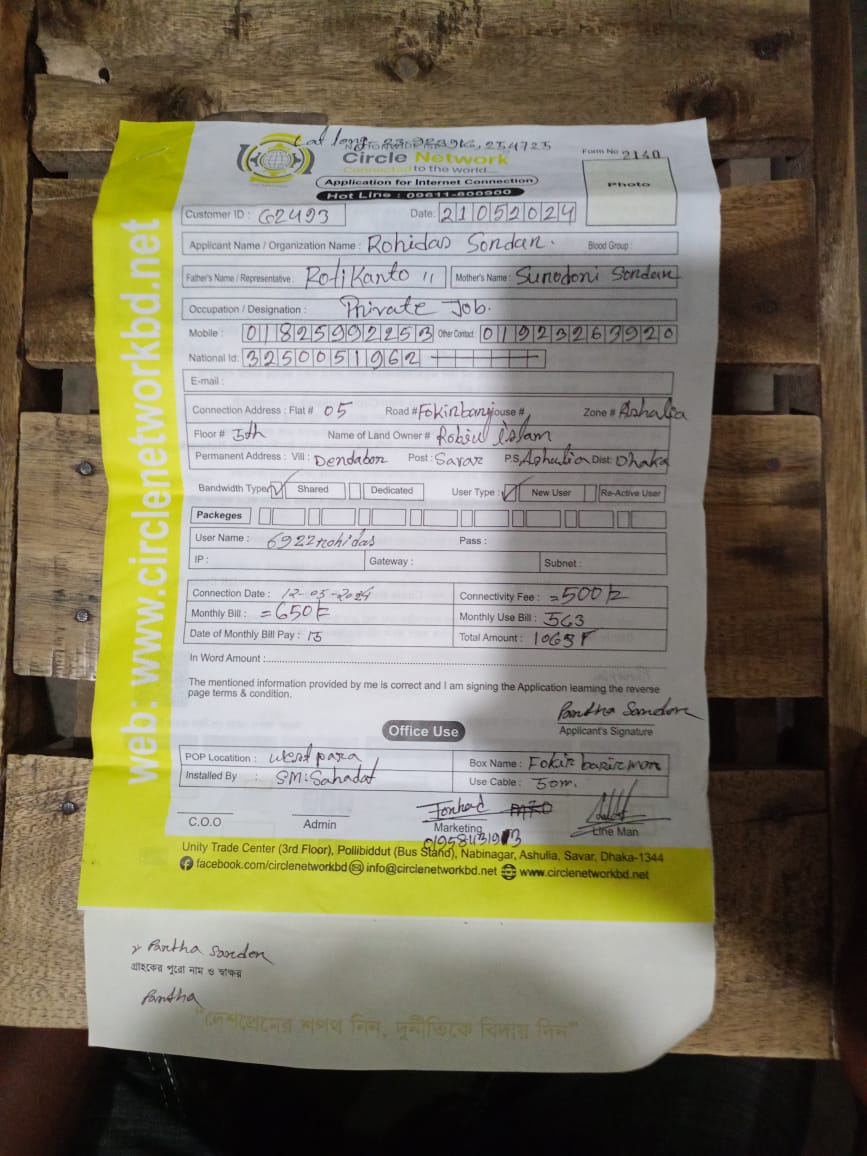 Lat long 23.923916, 254725
Circle Network
Connected to the world....
Form No 2140
Photo
Application for Internet Connection
Hot Line : 09611-800900
Customer ID : G2493
Date: 21052024
Applicant Name / Organization Name : Rohidas Sordar. Blood Group :
Father's Name / Representative : Rotikanto 11 Mother's Name : Sunodoni Sordar
Occupation / Designation : Private Job.
Mobile : 01825992253 Other Contact 01923263920
National Id: 3250051962
E-mail :
Connection Address : Flat # 05 Road # Fokirbari ouse # Zone # Ashalia
Floor # 5th Name of Land Owner # Robiul islam
Permanent Address : Vill : Dendabor Post : Savar P.S, Ashulia Dist: Dhaka
Bandwidth Type Shared Dedicated User Type : New User Re-Active User
Packeges
User Name : 6922rohidas Pass :
IP : Gateway : Subnet :
Connection Date : 12-05-2024 Connectivity Fee : =500/=
Monthly Bill : =650/= Monthly Use Bill : 563
Date of Monthly Bill Pay : 15 Total Amount : 1063
In Word Amount :
The mentioned information provided by me is correct and I am signing the Application learning the reverse
page terms & condition.
Partha Sardar
Applicant's Signature
Office Use
POP Locatition : West para Box Name : Fokir barir mor
Installed By : SM: Sahadat Use Cable : 50m.
Forhad
C.O.O Admin Marketing Line Man
Unity Trade Center (3rd Floor), Pollibiddut (Bus Stand), Nabinagar, Ashulia, Savar, Dhaka-1344
facebook.com/circlenetworkbd info@circlenetworkbd.net www.circlenetworkbd.net
web: www.circlenetworkbd.net
Partha Sardar
গ্রাহকের পুরো নাম ও স্বাক্ষর
Partha
"দেশপ্রেমের শপথ নিন, দুর্নীতিকে বিদায় দিন"